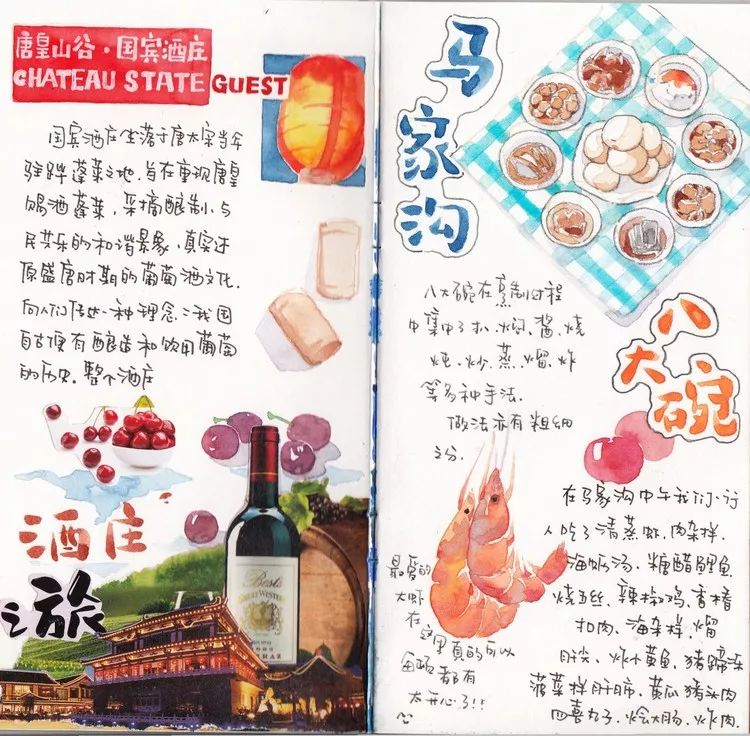 唐皇山谷·国宾酒庄
CHATEAU STATE GUEST
国宾酒庄坐落于唐太宗当年
驻跸蓬莱之地,旨在重现唐皇
赐酒蓬莱,采摘酿制,与
民共乐的和谐景象,真实还
原盛唐时期的葡萄酒文化.
向人们传达一种理念:我国
自古便有酿造和饮用葡萄
的历史.整个酒庄
酒庄
之旅
Best's
GREAT WESTERN
马家沟
八大碗在烹制过程
中集中了扒、焖、酱、烧
炖、炒、蒸、熘、炸
等多种手法.
做法亦有粗细
之分.
八大碗
最爱的
大虾
在
这里真的可以
每顿都有
太开心了!!
在马家沟中午我们一行
人吃了清蒸虾,肉杂拌,
海蛎汤,糖醋鲤鱼,
烧五丝,辣椒鸡,香椿
扣肉,海杂拌,熘
肝尖,炸小黄鱼,猪蹄冻
菠菜拌肝,黄瓜猪头肉
四喜丸子,烩大肠,炸肉.